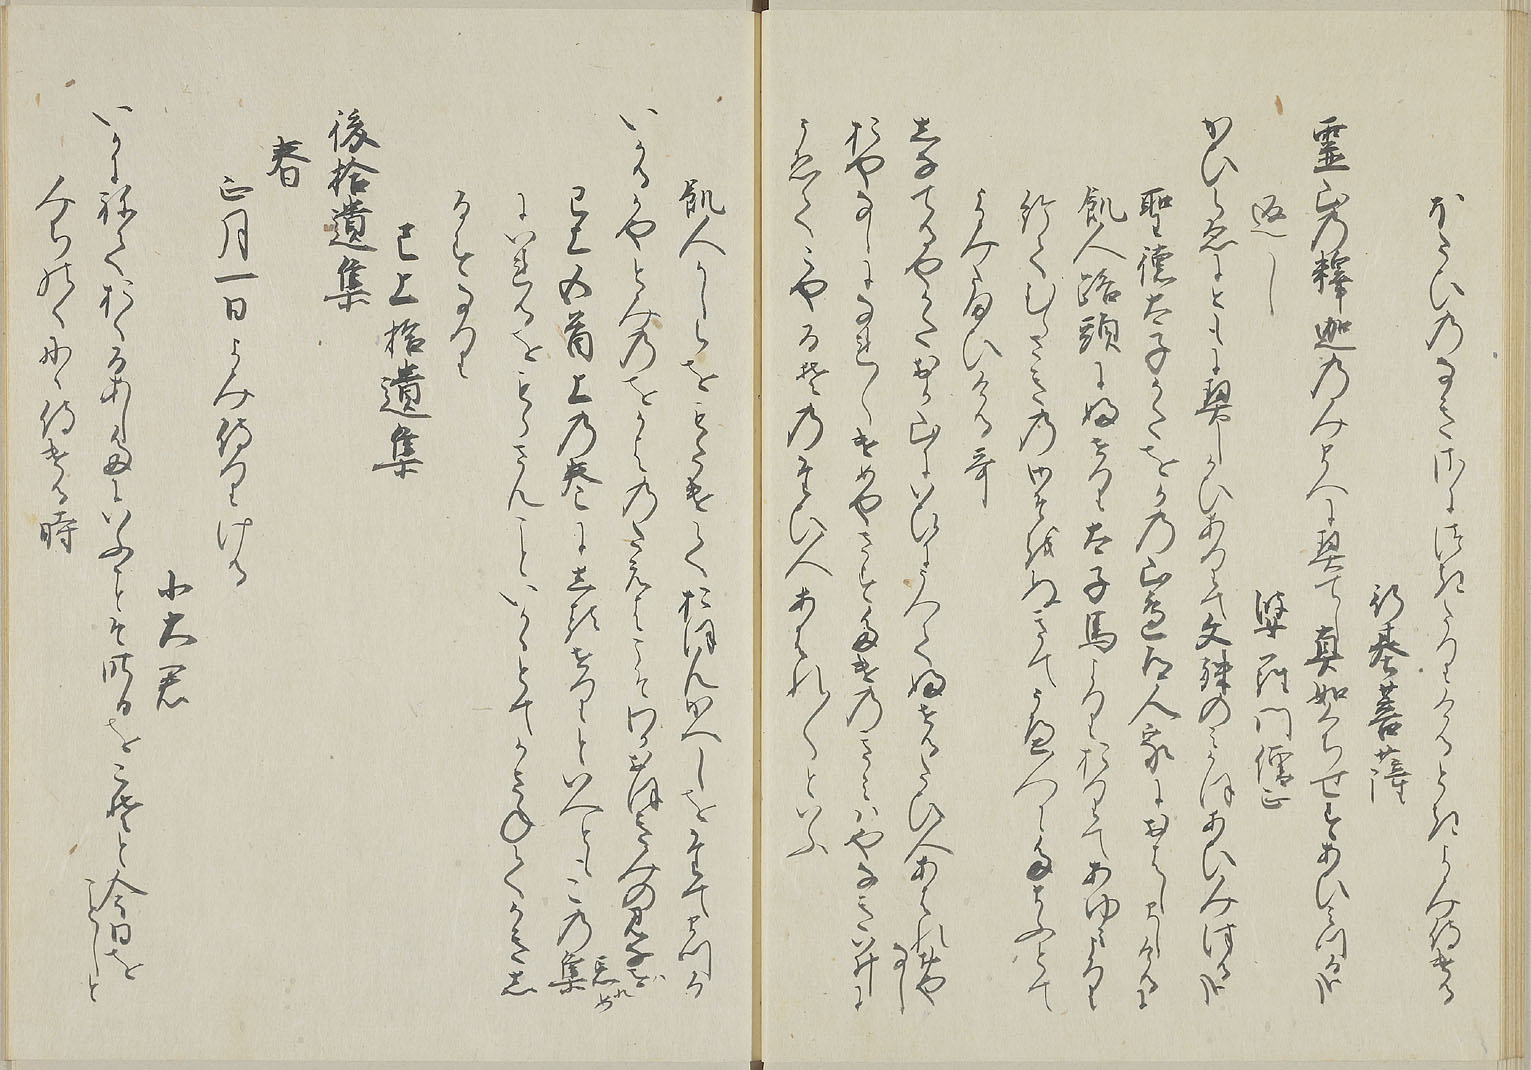 かたひのなきさにつきたりけるときよみ侍ける
行基菩薩
霊山乃釋迦乃みまへに契てし真如くちせすあひ見つるかな
返し
婆羅門僧正
かひらゑにともに契しかひありて文殊のみかほあひみつるかな
聖徳太子かたをか乃山邊道人家におはしましけるに
飢人路頭にふせり太子馬よりおりてあゆみより
給てむらさき乃御そをぬきてうへ人にたまふとて
よみたまひける哥
志なてるやかたおか山にいひにうへてふせるたひ人あはれおや
なし
おやなしになれ/\けめやさすたけ乃きみはやなきいひに
うゑてこやる其のたひ人あはれ/\といふ
飢人かしらをもたけておほんかへしをたてまつる
いかるかやとみ乃をかは乃たえはこそわかおほきみの御名を
忘れめ
已上五首上乃巻に志るせりといへともこ乃集
にいれるをもらさんこといかゝとてかさねてかき志
るすなり
已上拾遺集
後拾遺集
春
正月一日よみ侍りける
小大君
いかにねておくるあしたにいふことそ昨日をこそと今日をことしと
みちのくに侍ける時